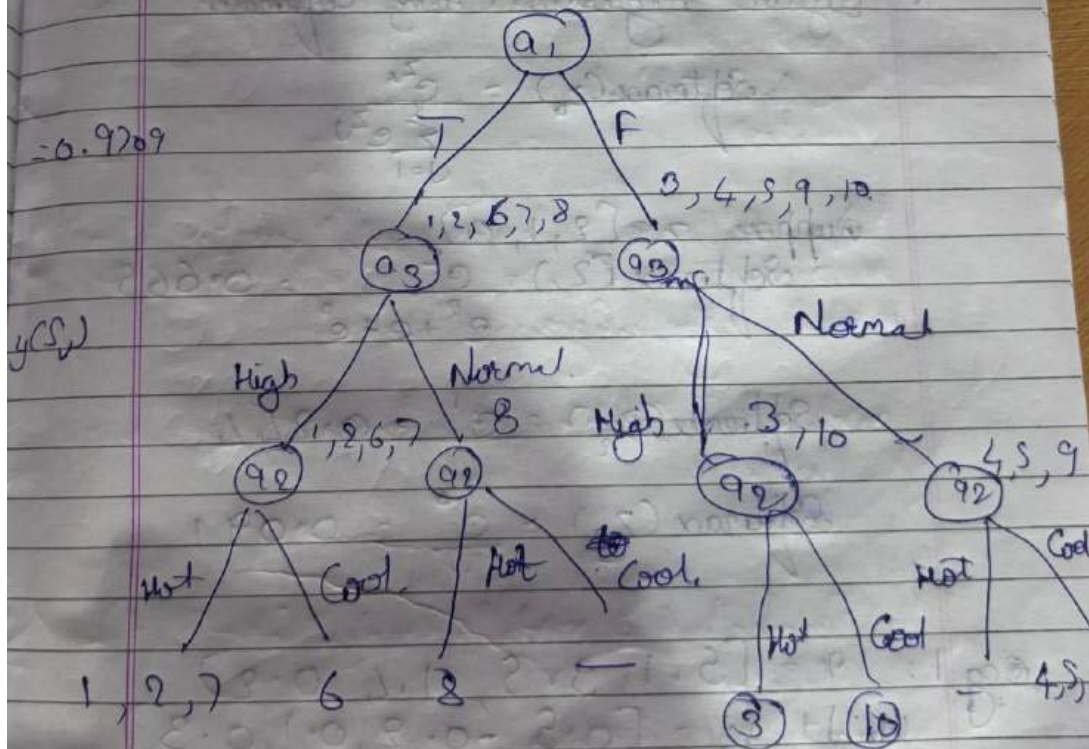 a1
=0.9709
T F
1, 2, 6, 7, 8 3, 4, 5, 9, 10
a3 a3
y(Sv)
High Normal High Normal
1, 2, 6, 7 8 3, 10 4, 5, 9
a2 a2 a2 a2
Hot Cool Hot Cool Hot Cool Hot Cool
1, 2, 7 6 8 — 3 10 — 4, 5,